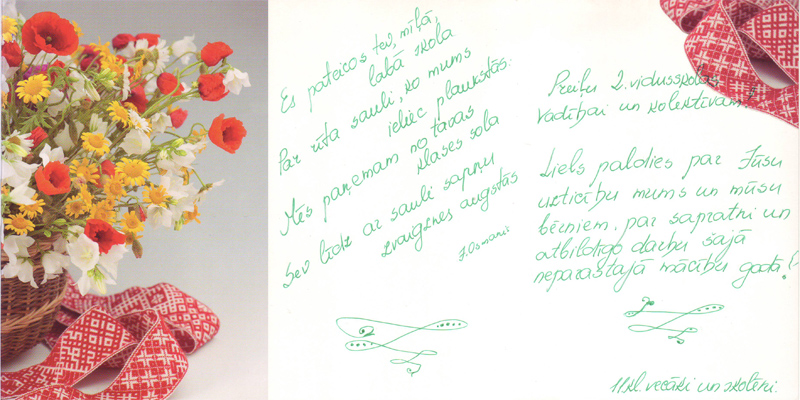 Es pateicos tev, mīļā,
labā skola
Par rīta sauli, ko mums
ieliec plaukstās.
Mēs paņemam no tavas
klases sola
Sev līdz ar sauli sapņu
zvaigznes augstās
Preiļu 2. vidusskolas
vadībai un kolektīvam!
Liels paldies par Jūsu
uzticību mums un mūsu
bērniem, par sapratni un
atbildīgo darbu šajā
neparastajā mācību gadā!
11.kl. vecāki un skolēni.